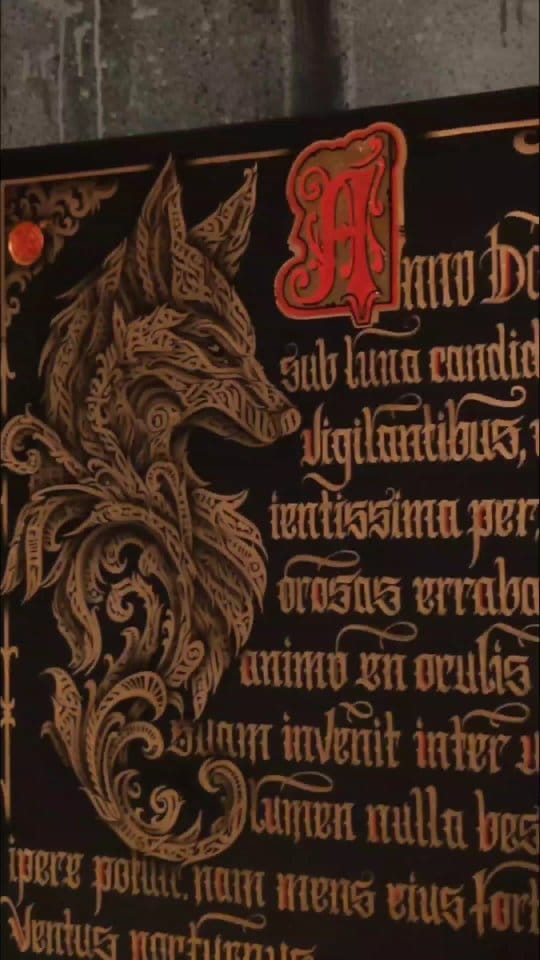 Anno Do
sub luna candid
vigilantibus,
ientissima per,
orosas erraba
animo en oculis
suam invenit inter u
lumen nulla bes
ipere potuit. nam mens eius fort
Ventus nocturnus